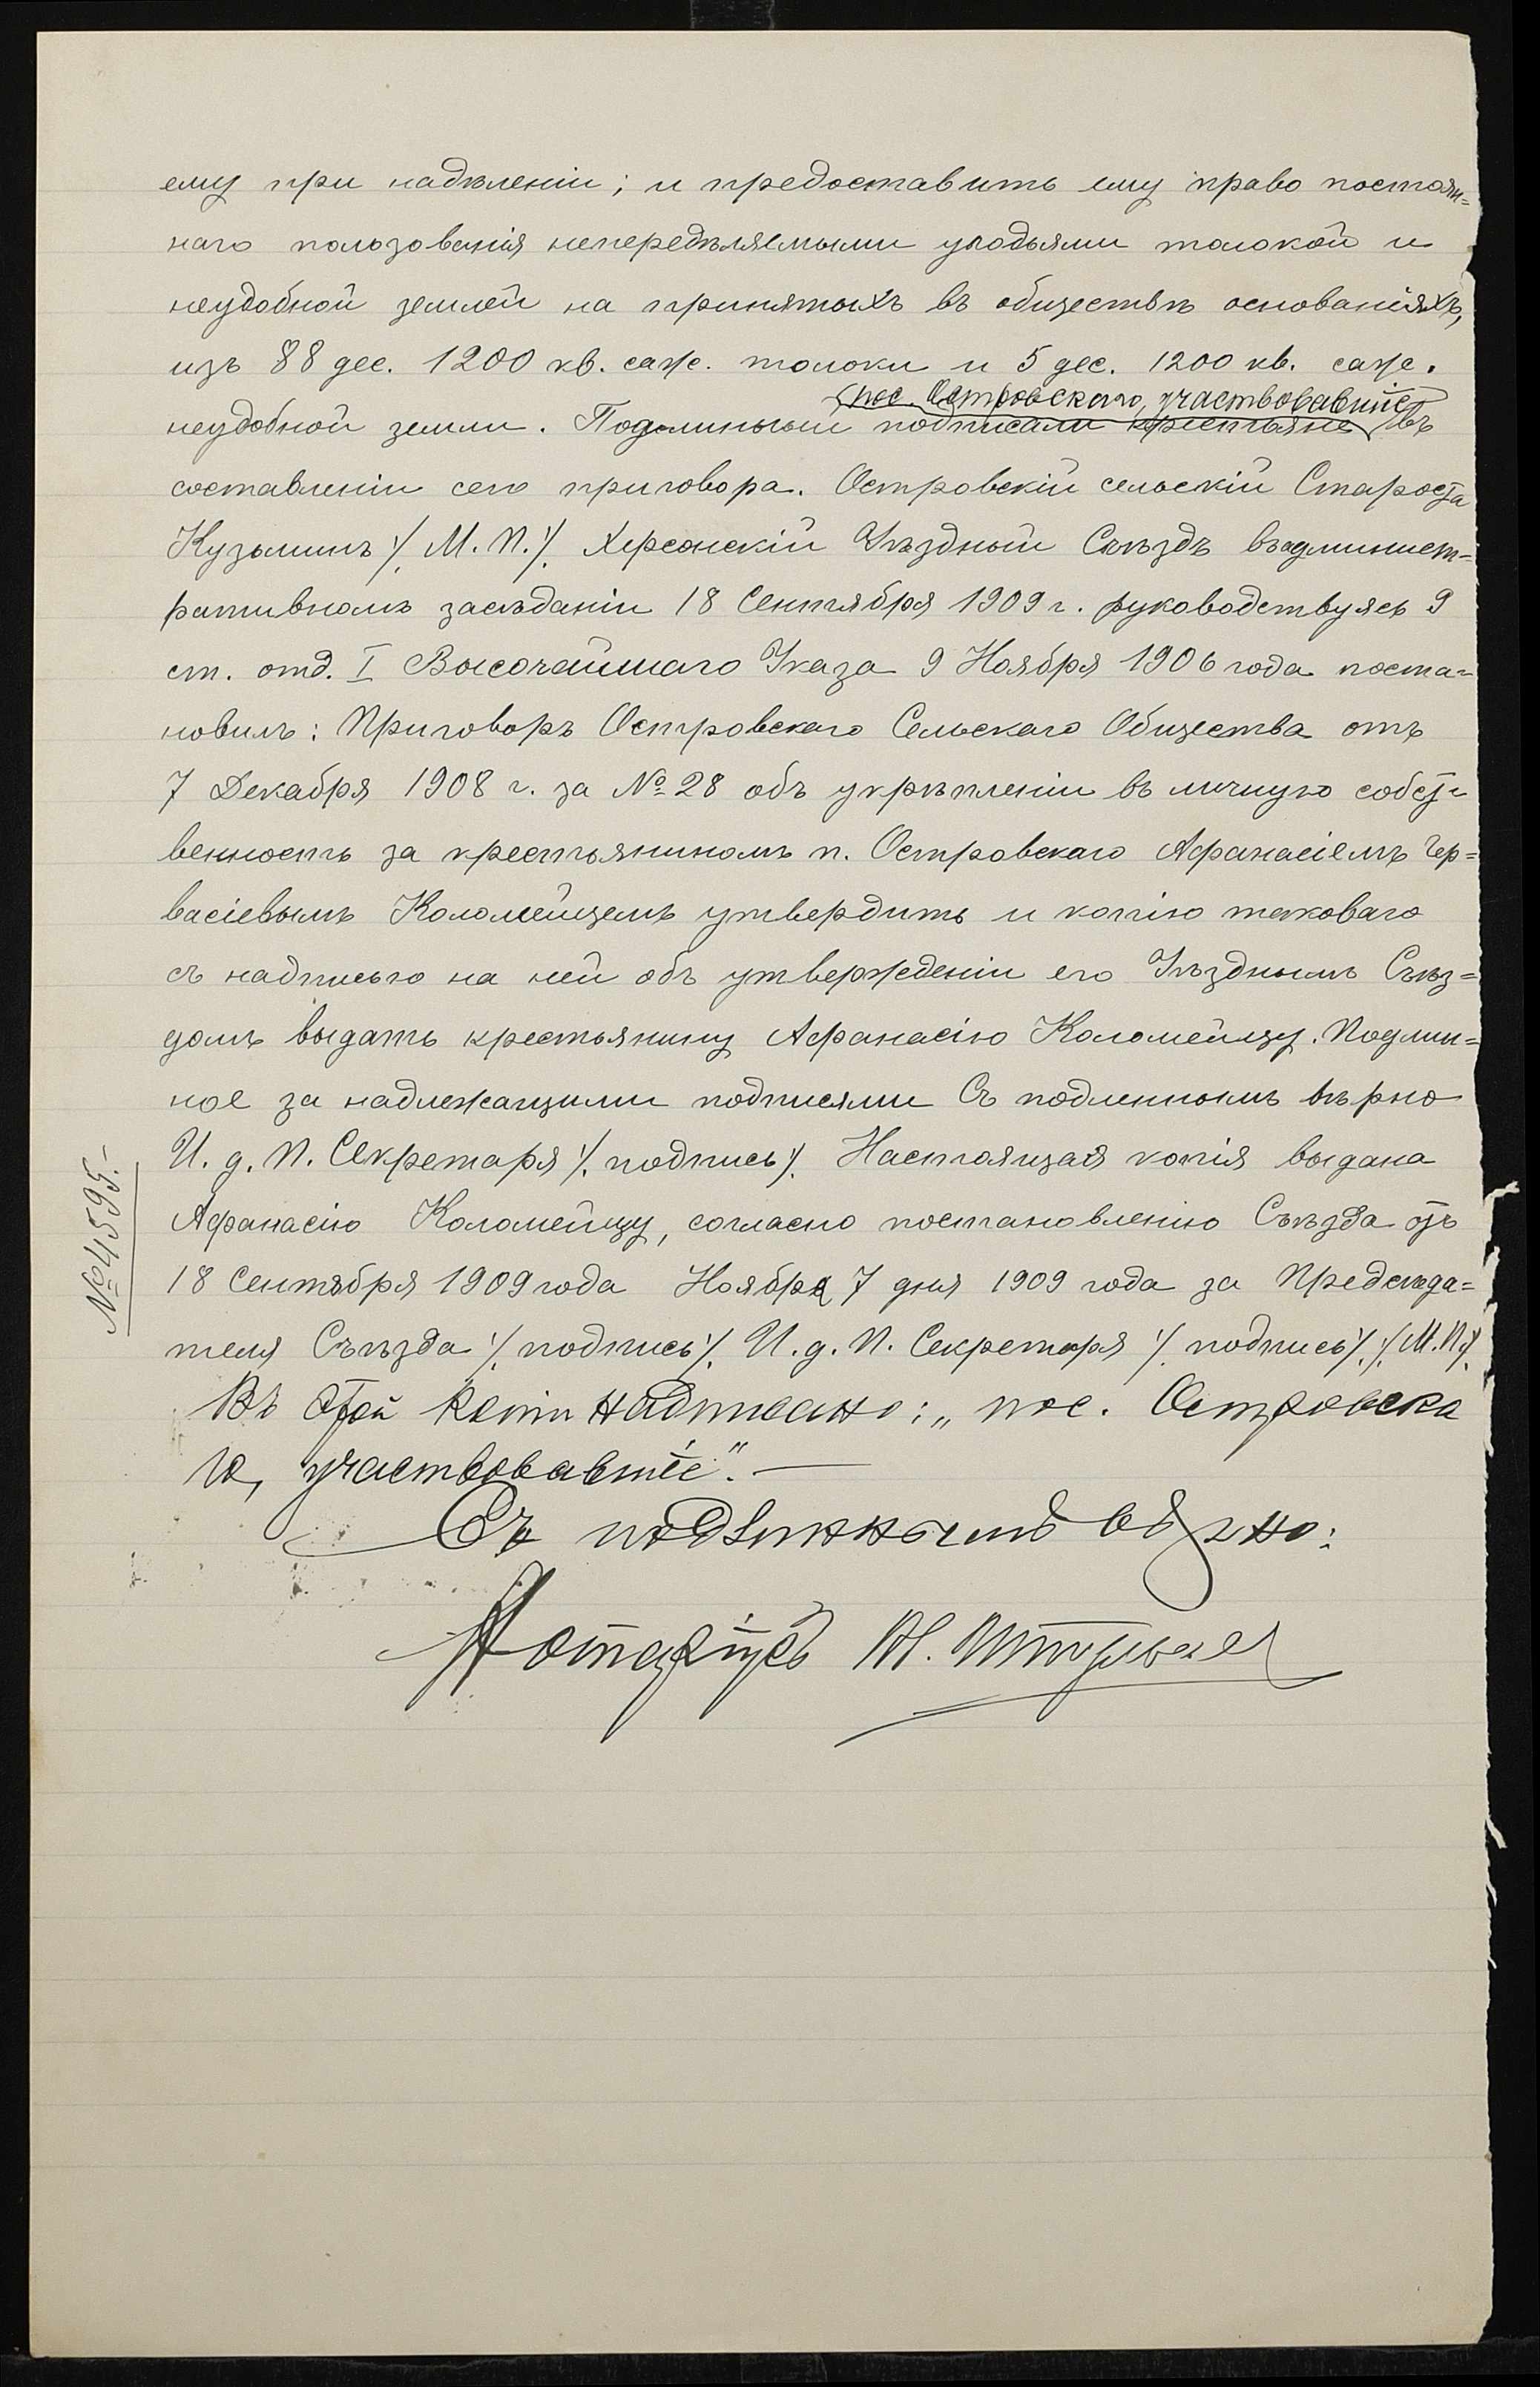 ему при надѣленіи; и предоставить ему право постоян=
наго пользованія непередѣляемыми угодьями толокой и
неудобной землей на принятыхъ въ обществѣ основаніяхъ,
изъ 88 дес. 1200 кв. саж. толоки и 5 дес. 1200 кв. саж.
пос. Островскаго, участвовавшіе
неудобной земли. Подлинный подписали крестьяне въ
составленіи сего приговора. Островскій сельскій Староста
Кузьминъ ./. М. П. ./. Херсонскій Уѣздный Съѣздъ въ админист=
ративномъ засѣданіи 18 Сентября 1909 г. руководствуясь 9
ст. отд. I Высочайшаго Указа 9 Ноября 1906 года поста=
новилъ: Приговоръ Островскаго Сельскаго Общества отъ
7 Декабря 1908 г. за № 28 объ укрѣпленіи въ личную собст=
венность за крестьяниномъ п. Островскаго Афанасіемъ Гер=
васіевымъ Коломейцемъ утвердить и копію таковаго
съ надписью на ней объ утвержденіи его Уѣзднымъ Съѣз=
домъ выдать крестьянину Афанасію Коломейцу. Подлин=
ное за надлежащими подписями Съ подлиннымъ вѣрно
И. д. П. Секретаря ./. подпись ./. Настоящая копія выдана
Афанасію Коломейцу, согласно постановленію Съѣзда отъ
18 Сентября 1909 года Ноября 7 дня 1909 года за Предсѣда=
теля Съѣзда ./. подпись ./. И. д. П. Секретаря ./. подпись ./. ./. М. П. ./.
№ 4595.-
Въ этой копіи надписано: „пос. Островска
го, участвовавшіе". —
Съ подлиннымъ вѣрно:
Нотаріусъ